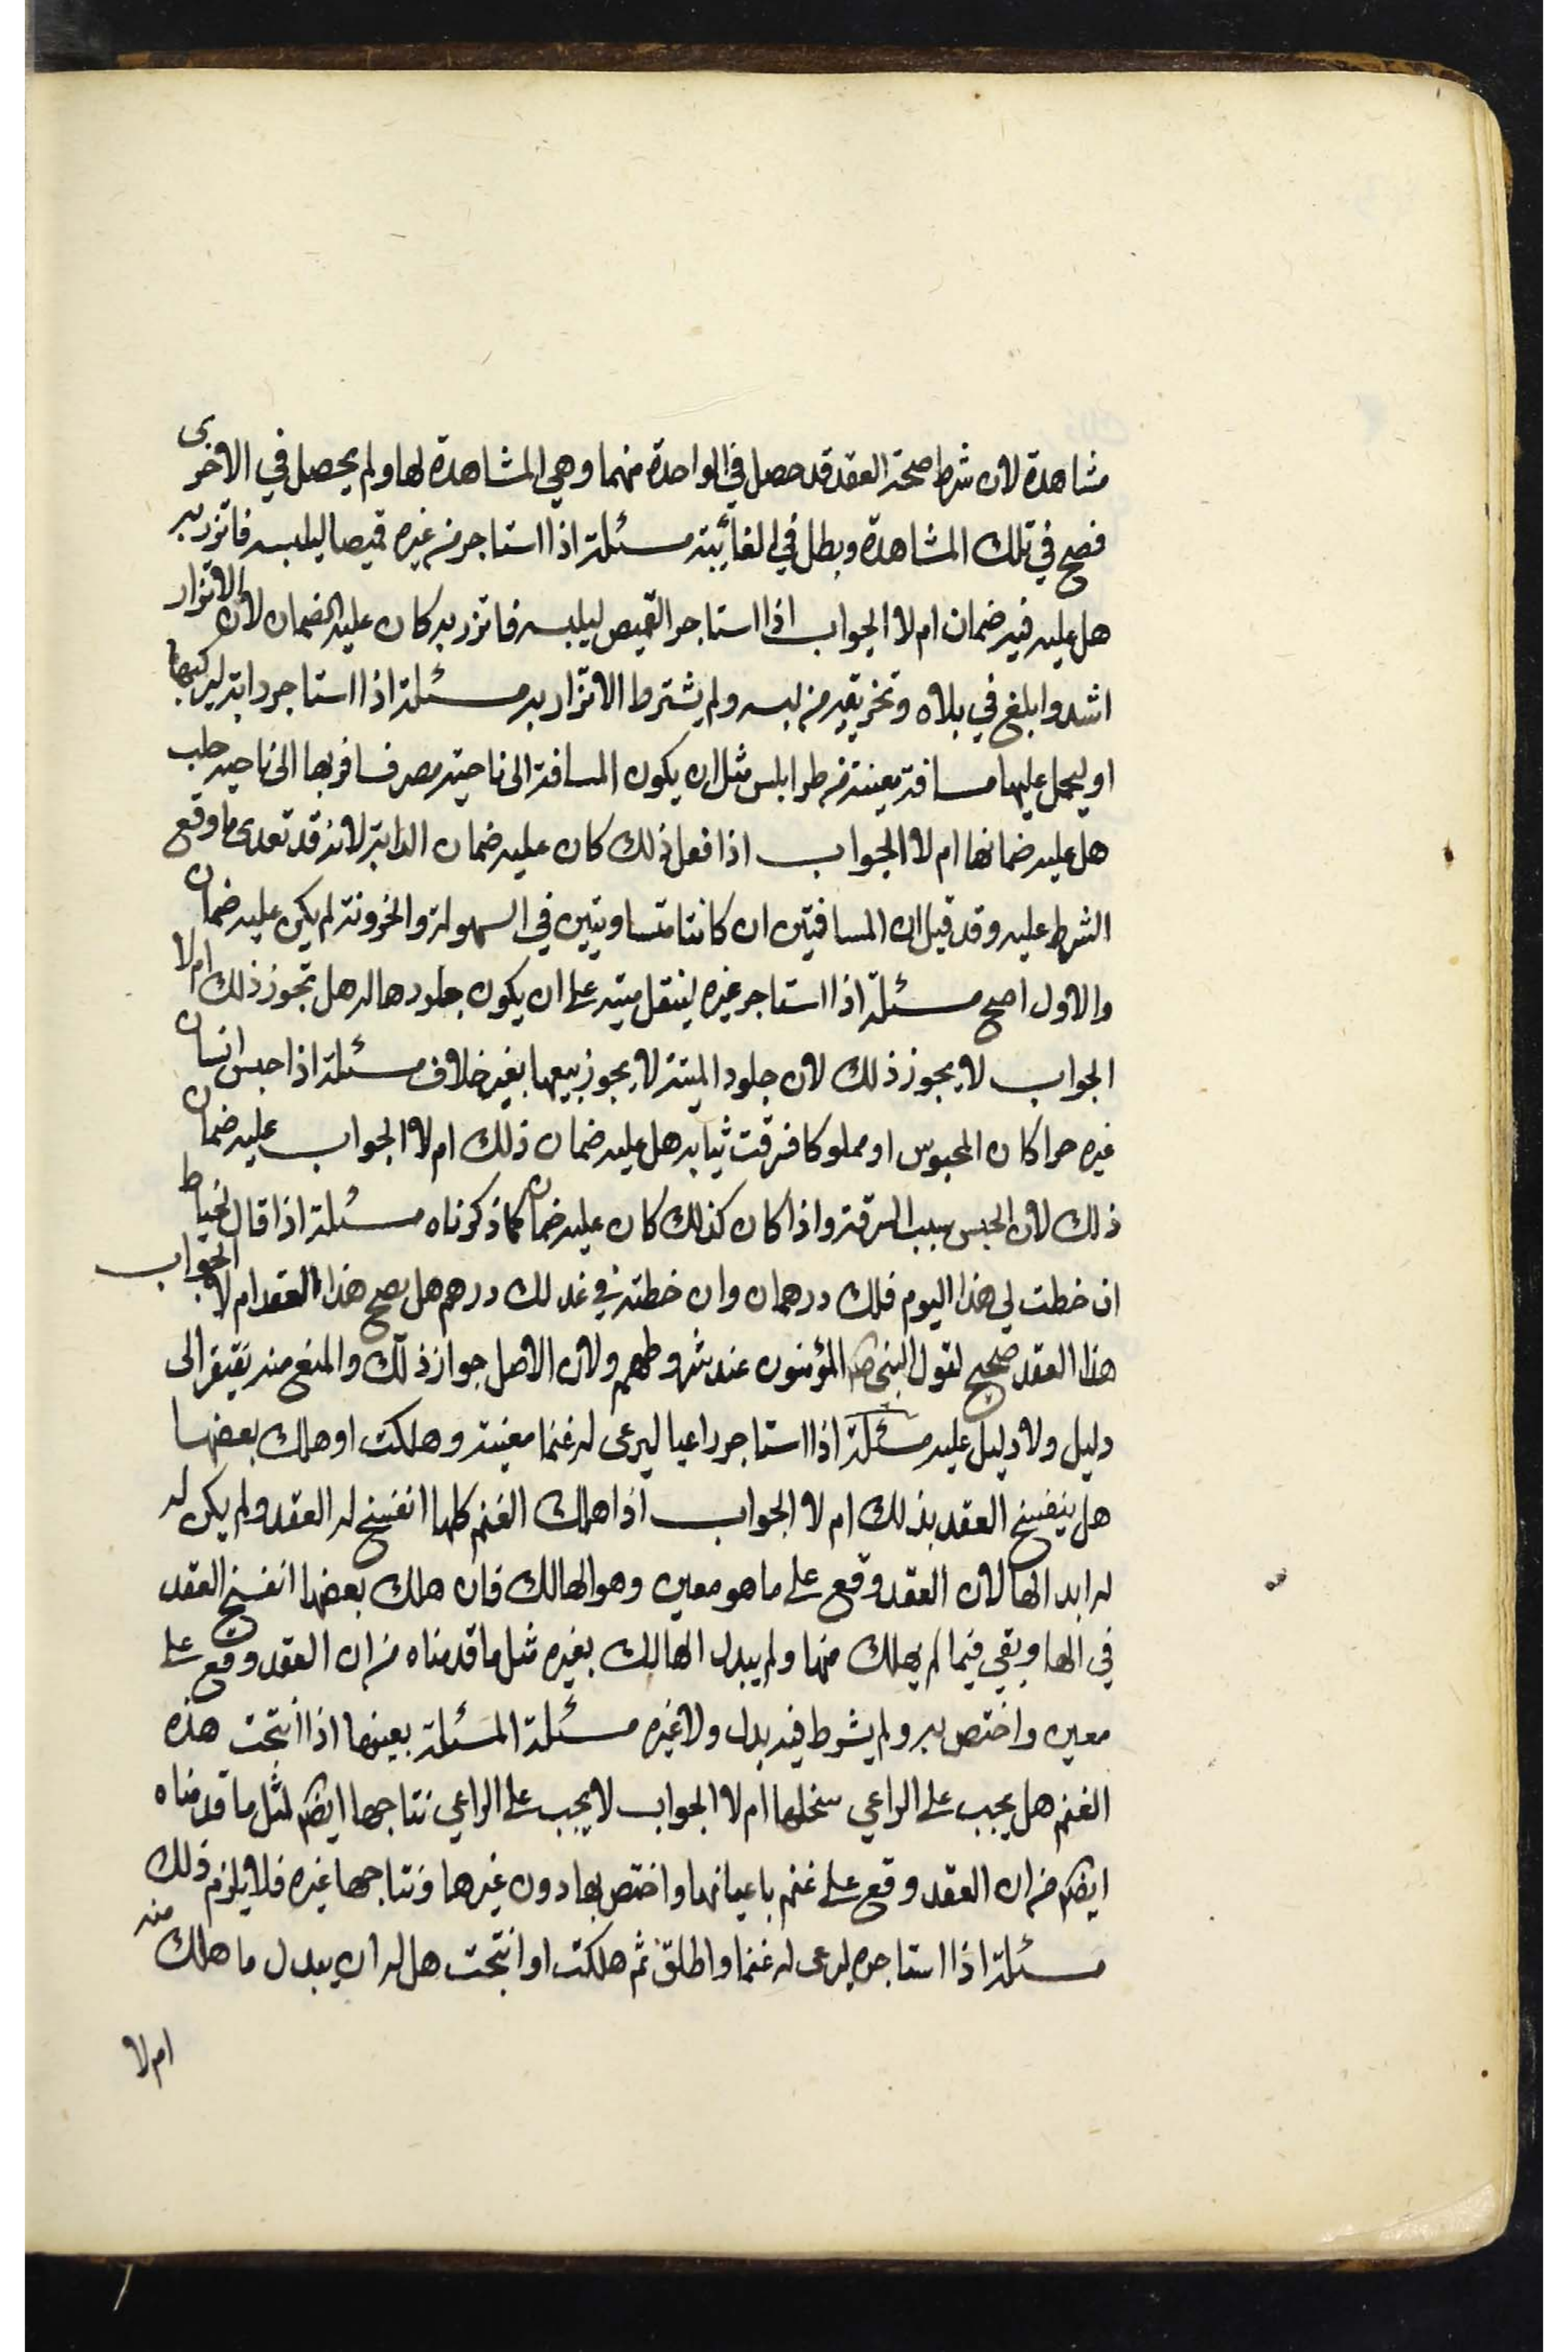 مشاهدة لان شرط صحة العقد قد حصل في الواحدة منهما وهي المشاهدة لها ولم يحصل في الاخرى
فصح في تلك المشاهدة وبطل في الغائبة مسئلة اذا استاجر من غيره قميصا ليلبسه فاتزر به
هل عليه فيه ضمان ام لا الجواب اذا استاجر القميص ليلبسه فاتزر به كان عليه الضمان لان الاتزار
اشد وابلغ في بلاه وتخريقه من لبسه ولم يشترط الاتزار به مسئلة اذا استاجر دابة ليركبها
او ليحمل عليها مسافة معينة من طرابلس مثل ان يكون المسافة الى ناحية مصر فسافر بها الى ناحية حلب
هل عليه ضمانها ام لا الجواب اذا فعل ذلك كان عليه ضمان الدابة لانه قد تعدى ما وقع
الشرط عليه وقد قيل ان المسافتين ان كانتا متساويتين في السهولة والخزونة لم يكن عليه ضمان
والاول اصح مسئلة اذا استاجر غيره لينقل ميتة على ان يكون جلودها له هل تجوز ذلك ام لا
الجواب لا يجوز ذلك لان جلود الميتة لا يجوز بيعها بغير خلاف مسئلة اذا حبس انسان
غيره حرا كان المحبوس او مملوكا فسرقت ثيابه هل عليه ضمان ذلك ام لا الجواب عليه ضمان
ذلك لان الحبس سبب السرقة واذا كان كذلك كان عليه ضمان كما ذكرناه مسئلة اذا قال لخياط
ان خطت لي هذا اليوم فلك درهمان وان خطته في غد لك درهم هل يصح هذا العقد ام لا الجواب
هذا العقد صحيح لقول النبي ص المؤمنون عند شروطهم ولان الاصل جواز ذلك والمنع منه يفتقر الى
دليل ولا دليل عليه مسئلة اذا استاجر راعيا ليرعى له غنما معينة وهلكت او هلك بعضها
هل ينفسخ العقد بذلك ام لا الجواب اذا هلك الغنم كلها انفسخ له العقد ولم يكن له
له ابدالها لان العقد وقع على ما هو معين وهو الهالك فان هلك بعضها انفسخ العقد
في الها وبقي فيما لم يهلك منها ولم يبدل الهالك بغيره مثل ما قدمناه من ان العقد وقع على
معين واختص به ولم يشرط فيه بدل ولا غيره مسئلة المسئلة بعينها اذا انتجت هذه
الغنم هل يجب على الراعي سخلها ام لا الجواب لا يجب على الراعي نتاجها ايضا لمثل ما قدمناه
ايضا من ان العقد وقع على غنم باعيانها واختص بها دون غيرها ونتاجها غيره فلا يلزم ذلك
مسئلة اذا استاجره ليرعى له غنما واطلق ثم هلكت او انتجت هل له ان يبدل ما هلك منه
ام لا